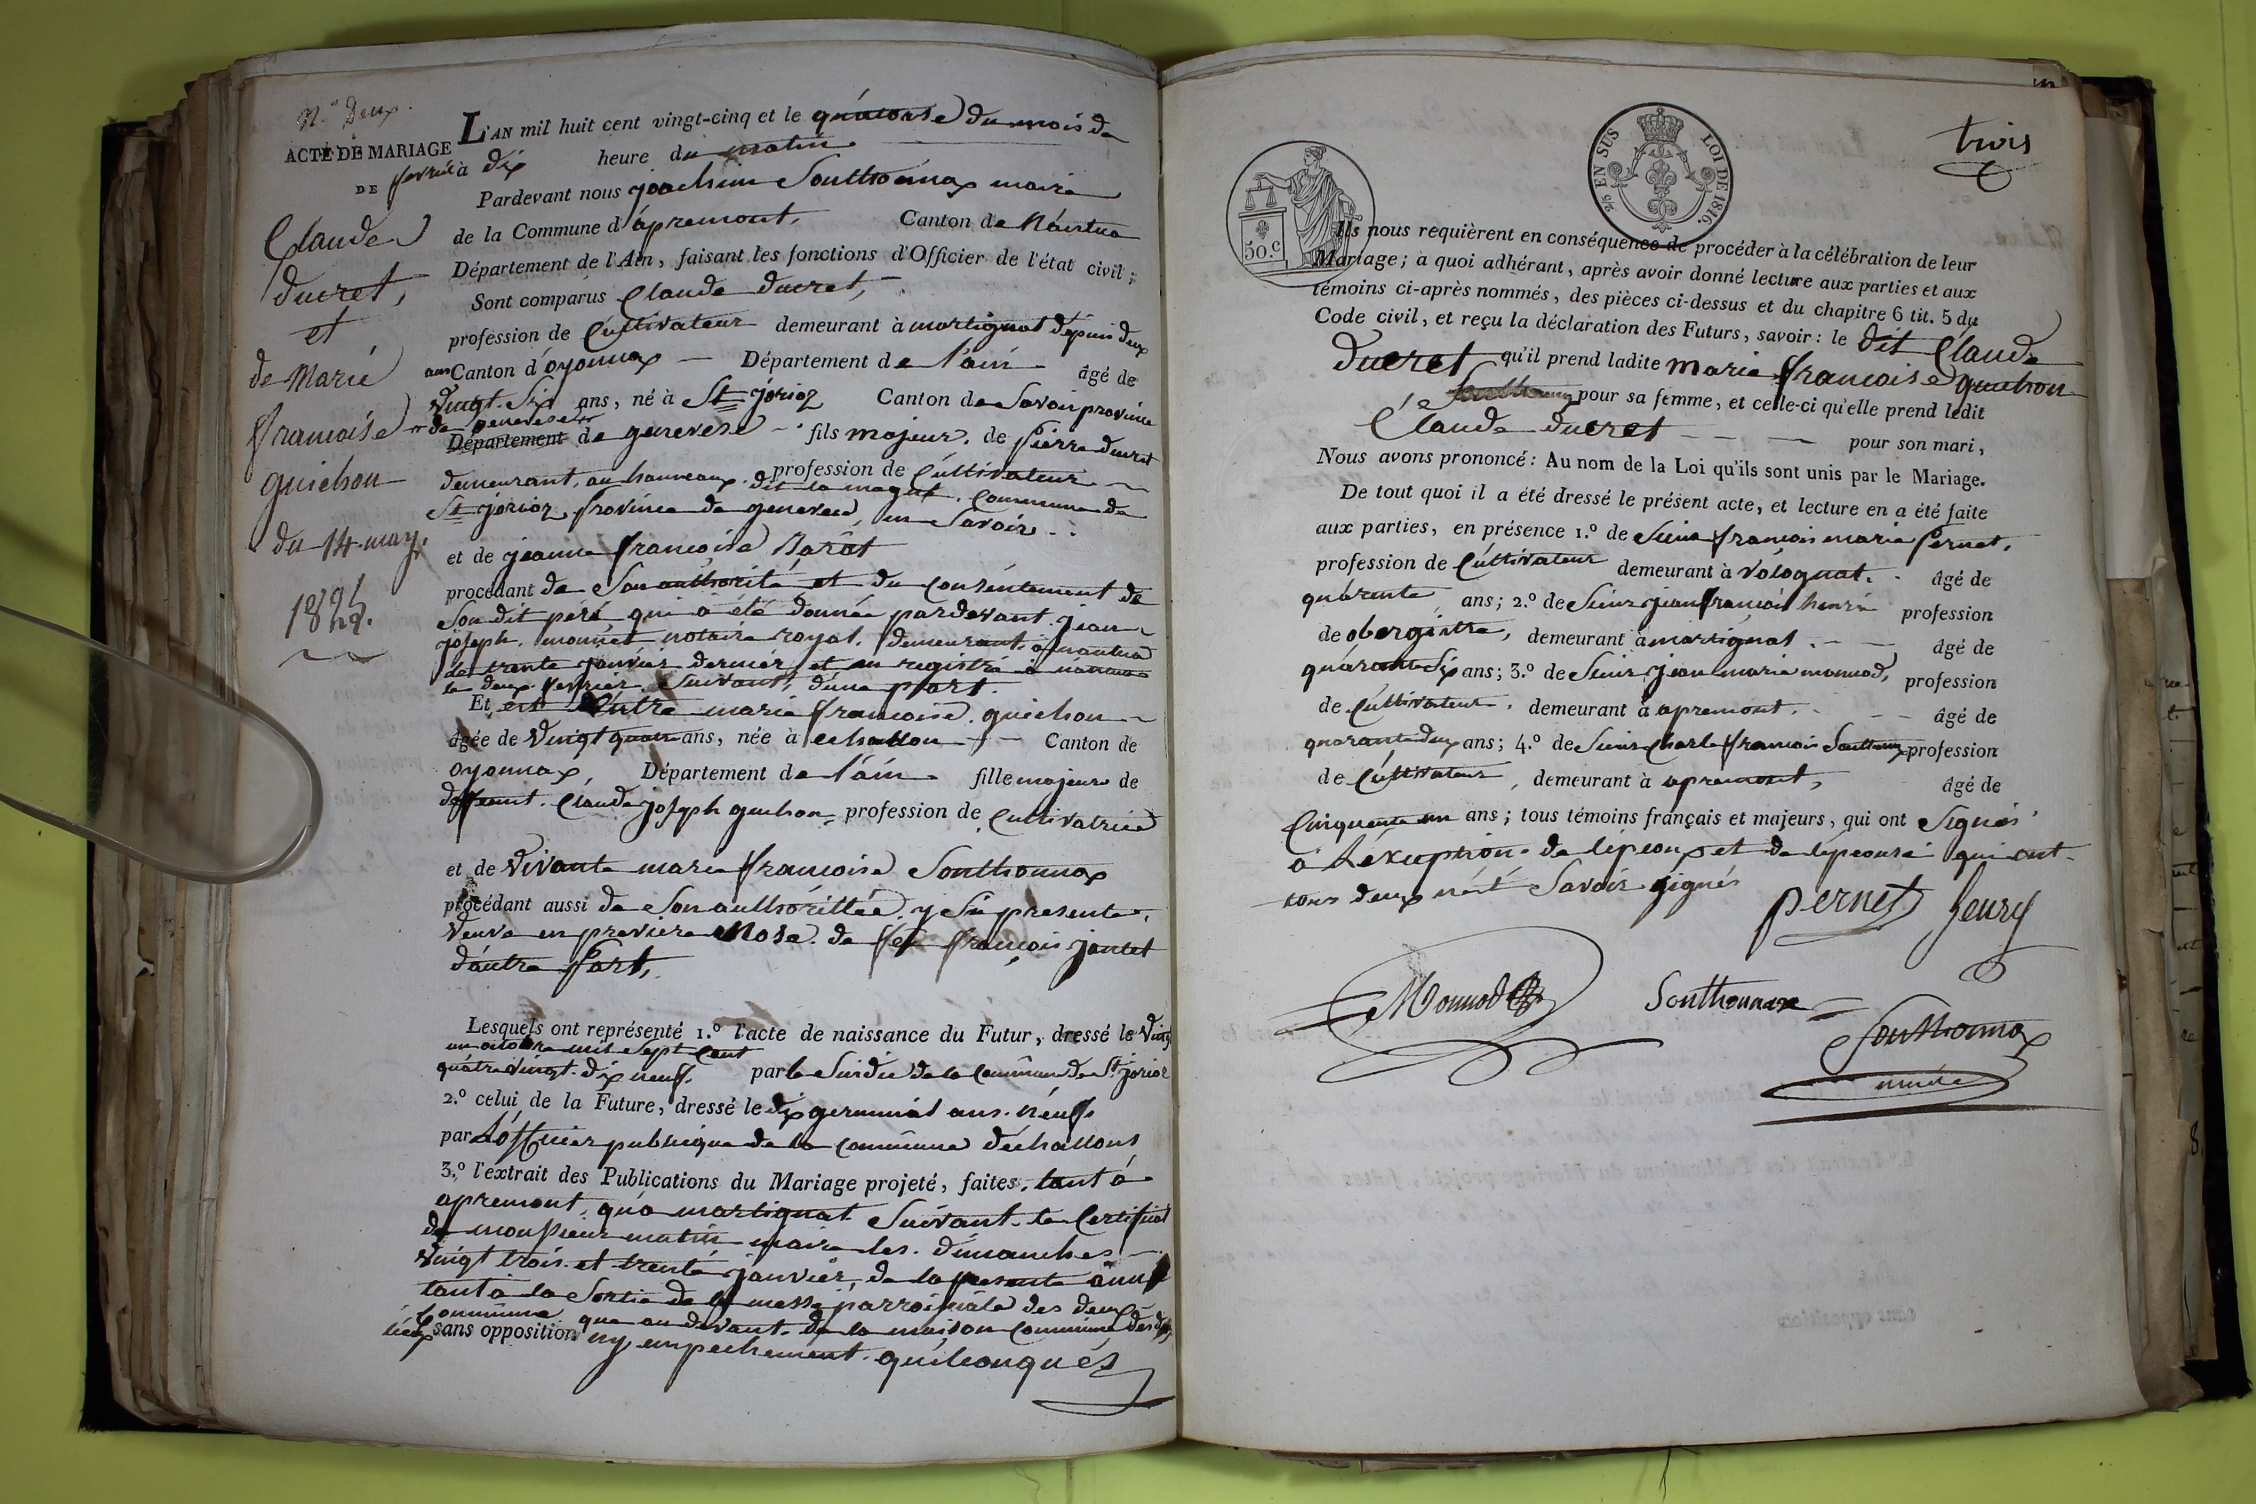 N.° Deux.
ACTE DE MARIAGE
DE
Claude
ducret,
et
de Marie
francoise
guichon
du 14 may.
1825.
L'AN mil huit cent vingt-cinq et le quatorse du mois de
fevrié à dix heure du matin
Pardevant nous joachim Sonthonnax maire
de la Commune d'apremont, Canton de Nantua
Département de l'Ain, faisant les fonctions d'Officier de l'état civil;
Sont comparus Claude ducret,
profession de Cultivateur demeurant à martignat depuis deux
ans Canton d'oyonnax Département de l'ain âgé de
vingt-six ans, né à St jorioz Canton de Savoir province
de genevese
Département de genevese fils majeur de pierre ducret
demeurant, au hauveaux dit la magne profession de Cultivateur
St jorioz province de genevese, en Savoir Commune de
et de jeanne francoise Barât
procédant de Son authorité et du consentement de
Son dit peré, qui a été donnée pardevant jean
joseph monnet notaire royal, demeurant à nantua
le trente janvier dernier et en registré à nantua
le deux fevrier Suivant, d'une part.
Et Entre marie francoise guichon
âgée de vingt quatre ans, née à echallon Canton de
oyonnax Département de l'ain fille majeure de
deffeunt Claude joseph guichon profession de Cultivatrice
et de vivante marie francoise Sonthonnax
procédant aussi de Son authorittée y Si presente,
veuve en premiere Nose de feu françois jantet
d'autre part,
Lesquels ont représenté 1.° l'acte de naissance du Futur, dressé le vingt
un octobre mil sept cent
quatre vingt-dix neuf, par le Sindic de la commune de St jorioz
2.° celui de la Future, dressé le dix germinal ans neuf
par L'officier publique de la commune d'echallons
3.° l'extrait des Publications du Mariage projeté, faites, tant à
apremont, qu'a martignat Suivant le Certificat
de monsieur matin maire les dimanches
vingt trois et trente janvier, de la presente anné
tant à la Sortie de la messe parroissiale des deux
Commune que au devant de la maison commune des dits
lieux sans opposition ny empechement quelconqués
trois
25 EN SUS LOI DE 1816.
50.C
Ils nous requièrent en conséquence de procéder à la célébration de leur
Mariage; à quoi adhérant, après avoir donné lecture aux parties et aux
témoins ci-après nommés, des pièces ci-dessus et du chapitre 6 tit. 5 du
Code civil, et reçu la déclaration des Futurs, savoir: le dit Claude
ducret qu'il prend ladite marie francoise guichon
pour sa femme, et celle-ci qu'elle prend ledit
Claude ducret pour son mari,
Nous avons prononcé: Au nom de la Loi qu'ils sont unis par le Mariage.
De tout quoi il a été dressé le présent acte, et lecture en a été faite
aux parties, en présence 1.° de Sieur francois marie pernet,
profession de Cultivateur demeurant à volognat. âgé de
quarente ans; 2.° de Sieur jean francois henri profession
de obergistre, demeurant à martignat âgé de
quarante Six ans; 3.° de Sieur jean marie monnod, profession
de Cultivateur, demeurant à apremont, âgé de
quarante deux ans; 4.° de Sieur Charle francois Sonthonnax profession
de Cultivateur, demeurant à apremont, âgé de
Cinquente un ans; tous témoins français et majeurs, qui ont Signés
a L'exception de l'epoux et de l'epouse qui ont
tous deux Savoir Signés
pernet henry
Monnod Sonthonnax
Sonthonnax
maire